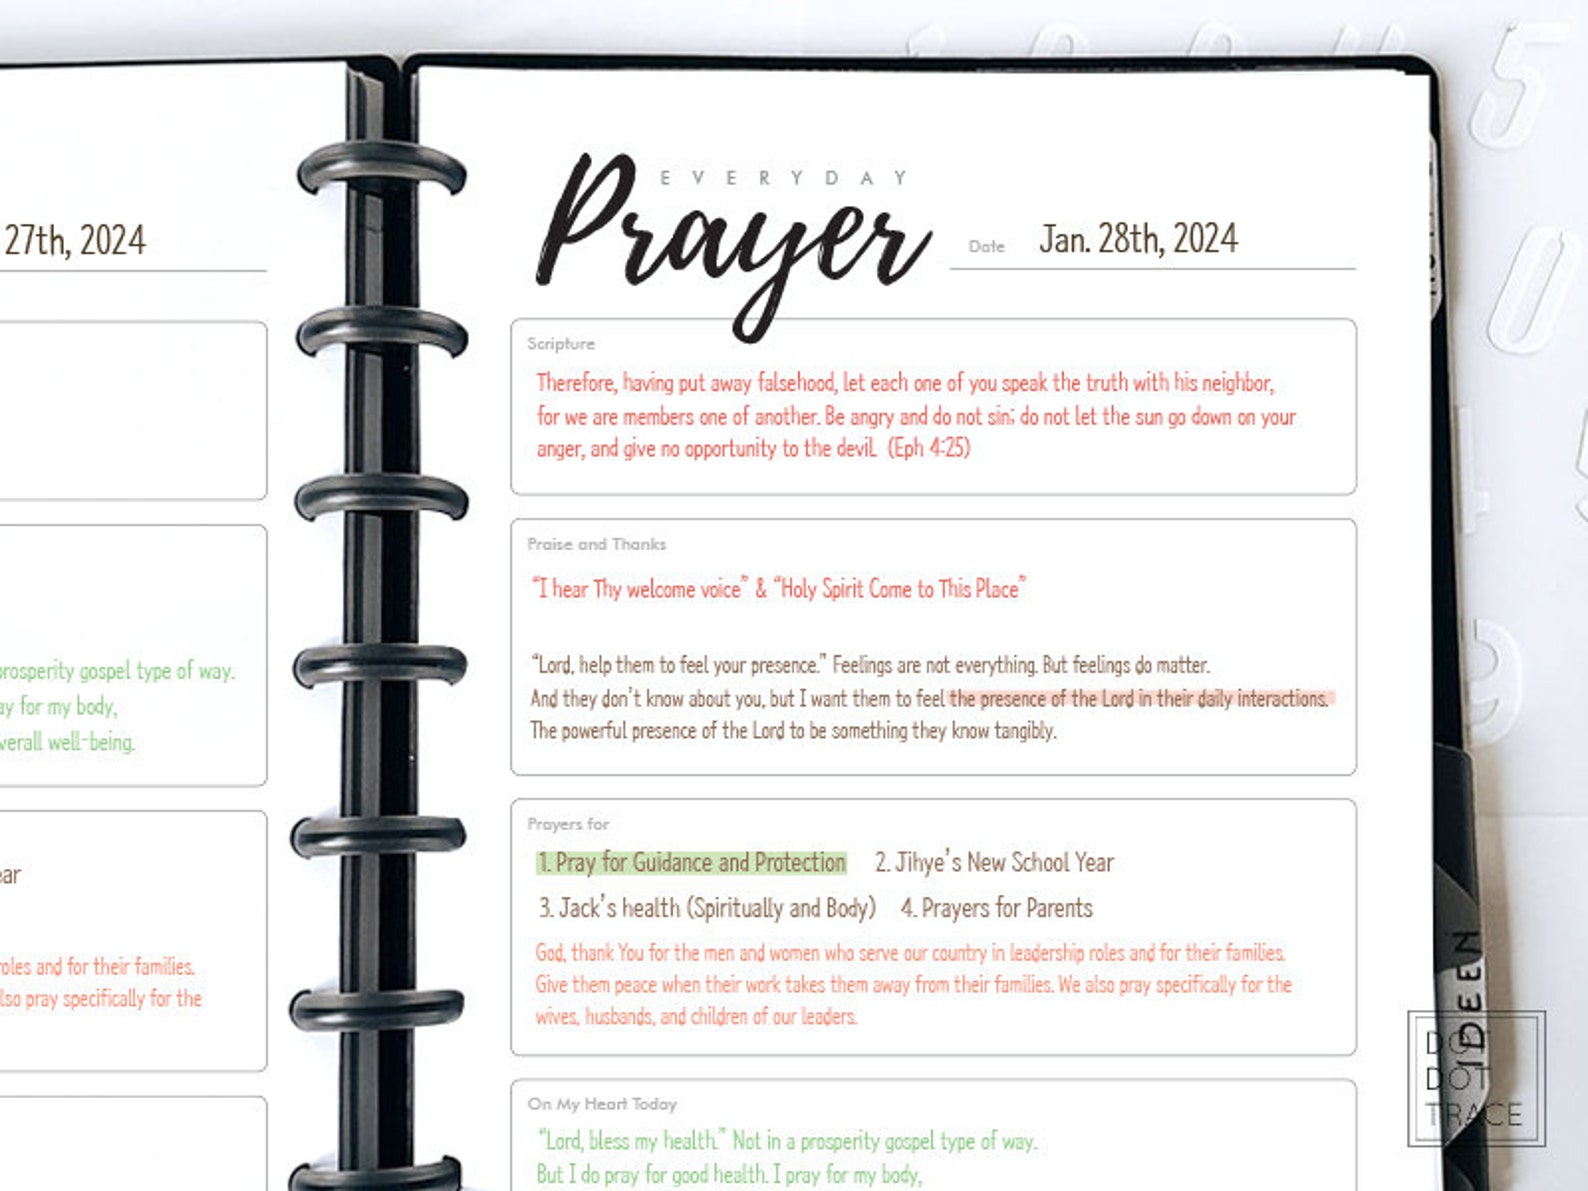 27th, 2024
prosperity gospel type of way.
ay for my body,
verall well-being.
ear
roles and for their families.
lso pray specifically for the
EVERYDAY
Prayer
Date Jan. 28th, 2024
Scripture
Therefore, having put away falsehood, let each one of you speak the truth with his neighbor,
for we are members one of another. Be angry and do not sin; do not let the sun go down on your
anger, and give no opportunity to the devil. (Eph 4:25)
Praise and Thanks
“I hear Thy welcome voice” & “Holy Spirit Come to This Place”
“Lord, help them to feel your presence.” Feelings are not everything. But feelings do matter.
And they don’t know about you, but I want them to feel the presence of the Lord in their daily interactions.
The powerful presence of the Lord to be something they know tangibly.
Prayers for
1. Pray for Guidance and Protection 2. Jihye’s New School Year
3. Jack’s health (Spiritually and Body) 4. Prayers for Parents
God, thank You for the men and women who serve our country in leadership roles and for their families.
Give them peace when their work takes them away from their families. We also pray specifically for the
wives, husbands, and children of our leaders.
On My Heart Today
“Lord, bless my health.” Not in a prosperity gospel type of way.
But I do pray for good health. I pray for my body,
IDEEN
DOT
DOT
TRACE